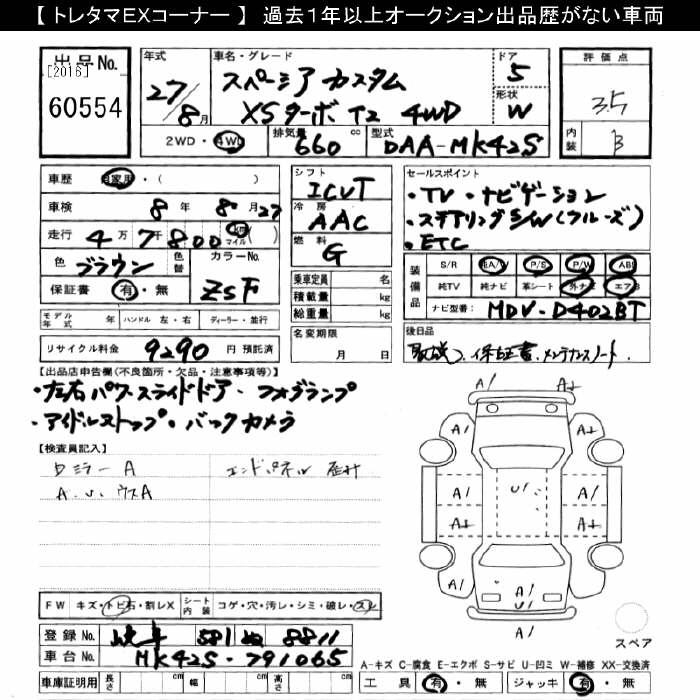 【 トレタマEXコーナー 】 過去１年以上オークション出品歴がない車両
出品No.
[2016]
60554
年式
27/8月
車名・グレード
スペーシア カスタム
XSターボ T2 4WD
ドア
5
形状
W
評価点
3.5
内装
B
2WD・4WD
排気量
660 cc
型式
DAA-MK42S
車歴 自家用・( )
車検 8年 8月27
走行 4万7800 km マイル ( )
色 ブラウン 色替
カラーNo.
ZSF
保証書 有・無
シフト
ICVT
冷房
AAC
燃料
G
セールスポイント
・TV・ナビゲーション
・ステアリングS/W(クルーズ)
・ETC
装備品
S/R 純A/W P/S P/W ABS
純TV 純ナビ 革シート 外ナビ エアB
ナビ型番: MDV-D402BT
乗車定員 名
積載量 kg
総重量 kg
モデル年式 年 ハンドル 左・右 ディーラー・並行
名変期限
月 日
後日品
取説、保証書、メンテナンスノート
リサイクル料金 9290 円 預託済
【出品店申告欄(不良箇所・欠品・注意事項等)】
・左右パワースライドドア・フォグランプ
・アイドルストップ・バックカメラ
【検査員記入】
ミラーA
エンドパネル
A・U・ウスA
A/ A+
A/ A+
A/ U/ A/
A+ A+
A/ A/ A/
U/
A/
スペア
FW キズ・トビ石・割レX シート内装 コゲ・穴・汚レ・シミ・破レ・スレ
登録No. 岐阜 581 8811
車台No. MK42S-791065
車庫証明用 長さ cm 幅 cm 高さ cm
A-キズ C-腐食 E-エクボ S-サビ U-凹ミ W-補修 XX-交換済
工具 有・無 ジャッキ 有・無